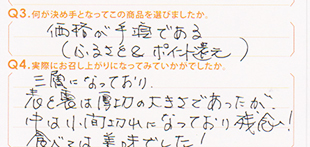 Q3.何が決め手となってこの商品を選びましたか。
価格が手頃である
(ふるさと& ポイント還元)
Q4.実際にお召し上がりになってみていかがでしたか。
三層になっており、
表と裏は厚切の大きさであったが、
中は小間切れになっており残念!
食べては美味でした!